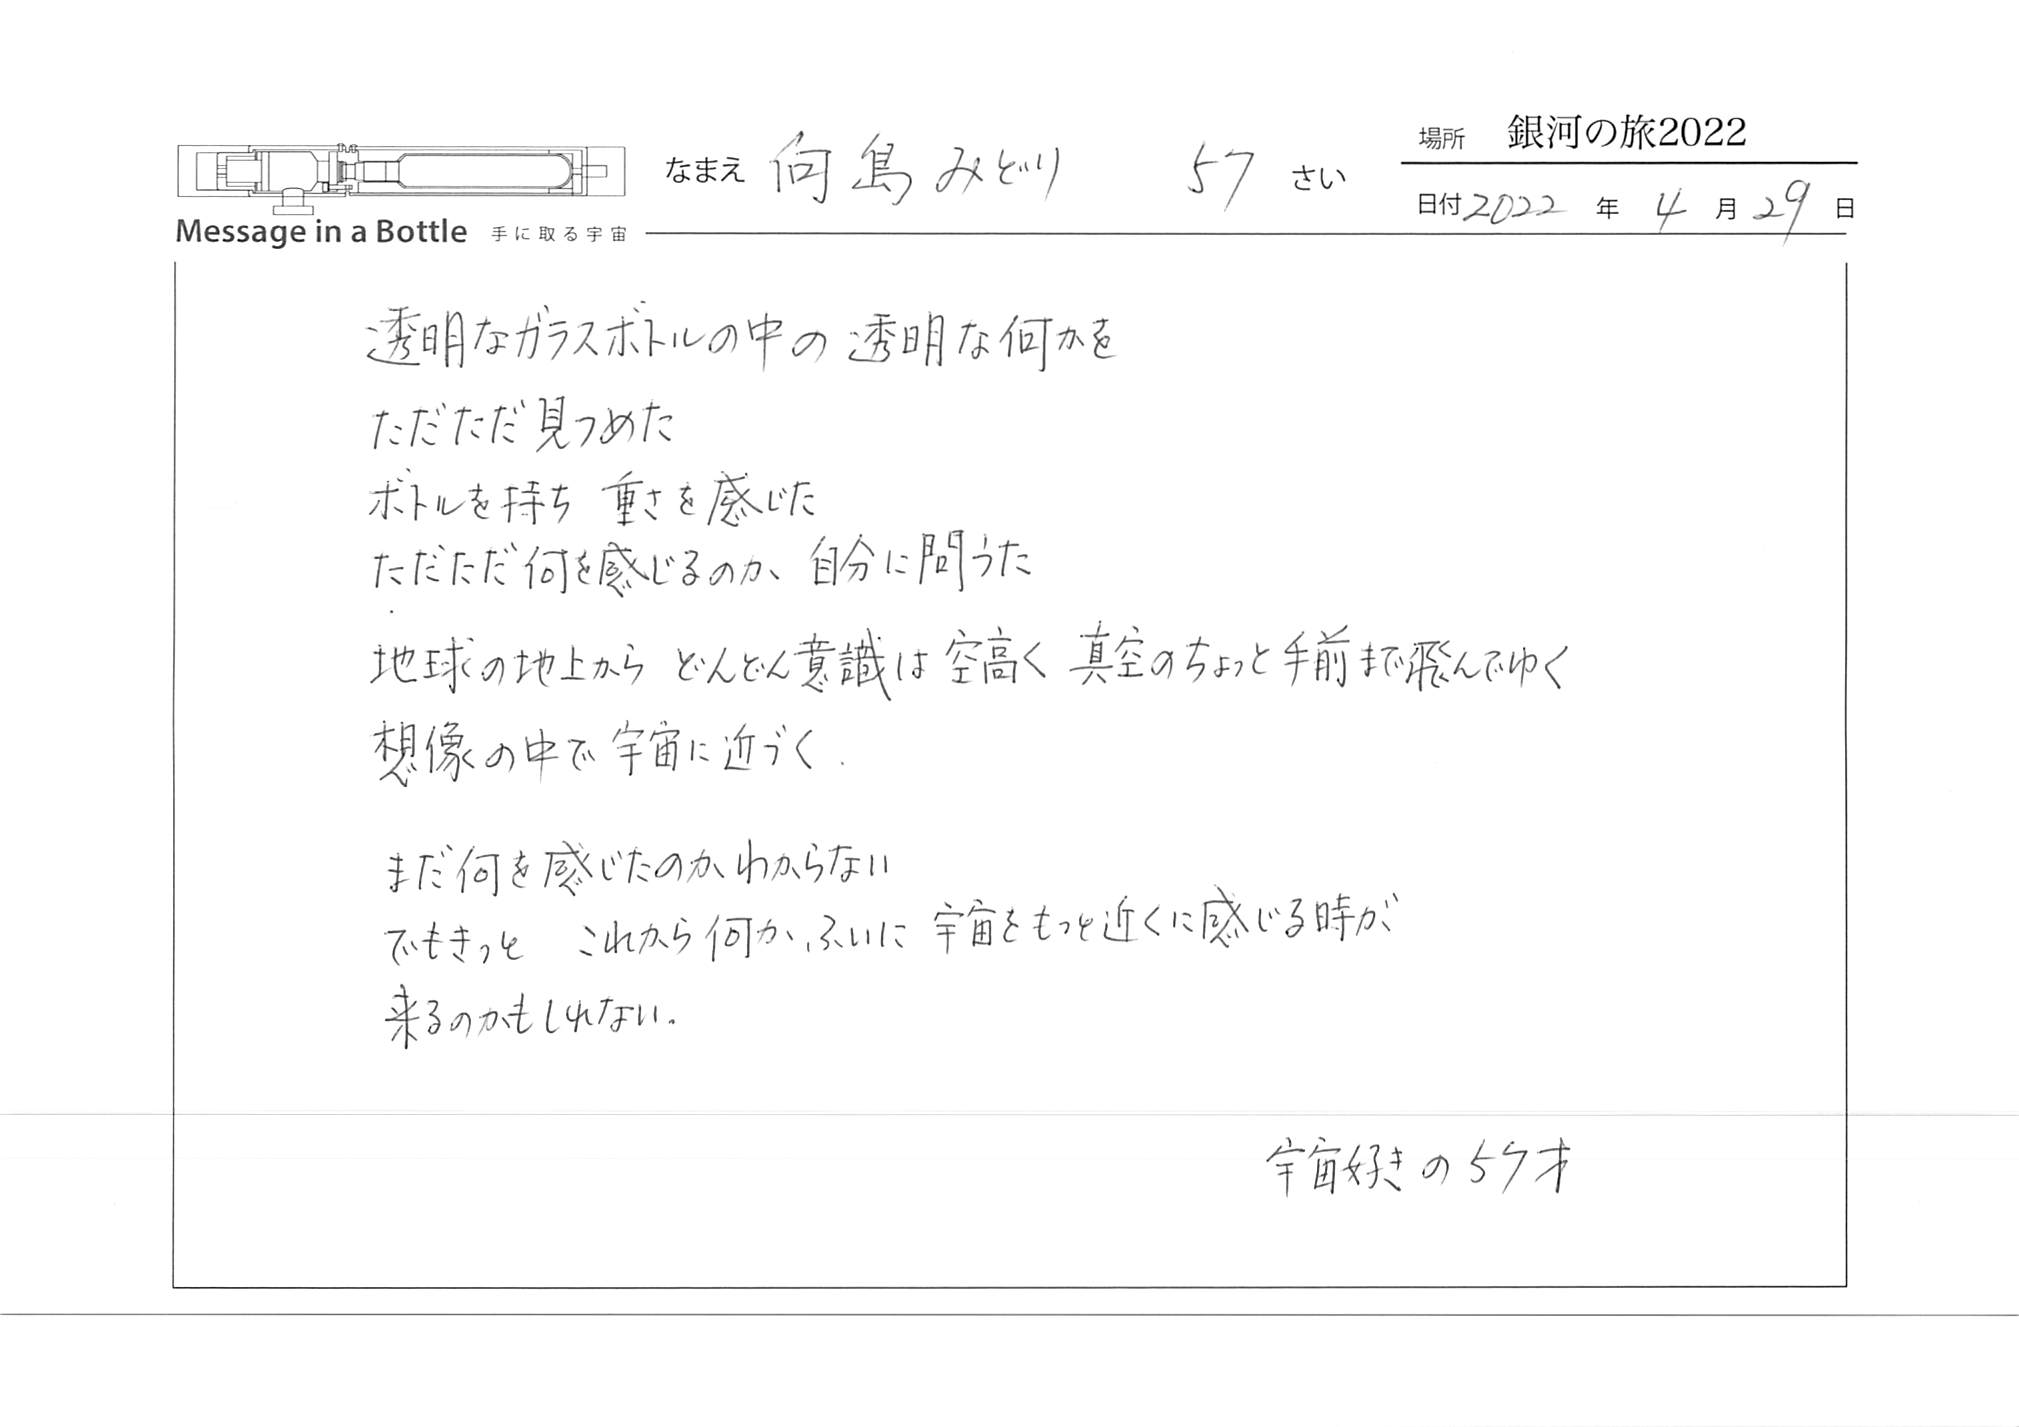 なまえ 向島みどり 57 さい
場所 銀河の旅2022
日付 2022 年 4 月 29 日
Message in a Bottle 手に取る宇宙
透明なガラスボトルの中の 透明な何かを
ただただ見つめた
ボトルを持ち 重さを感じた
ただただ何を感じるのか、自分に問うた
地球の地上から どんどん意識は 空高く 真空のちょっと手前まで飛んでゆく
想像の中で 宇宙に近づく.
まだ何を感じたのかわからない
でもきっと これから何か、ふいに 宇宙をもっと近くに感じる時が
来るのかもしれない.
宇宙好きの57才